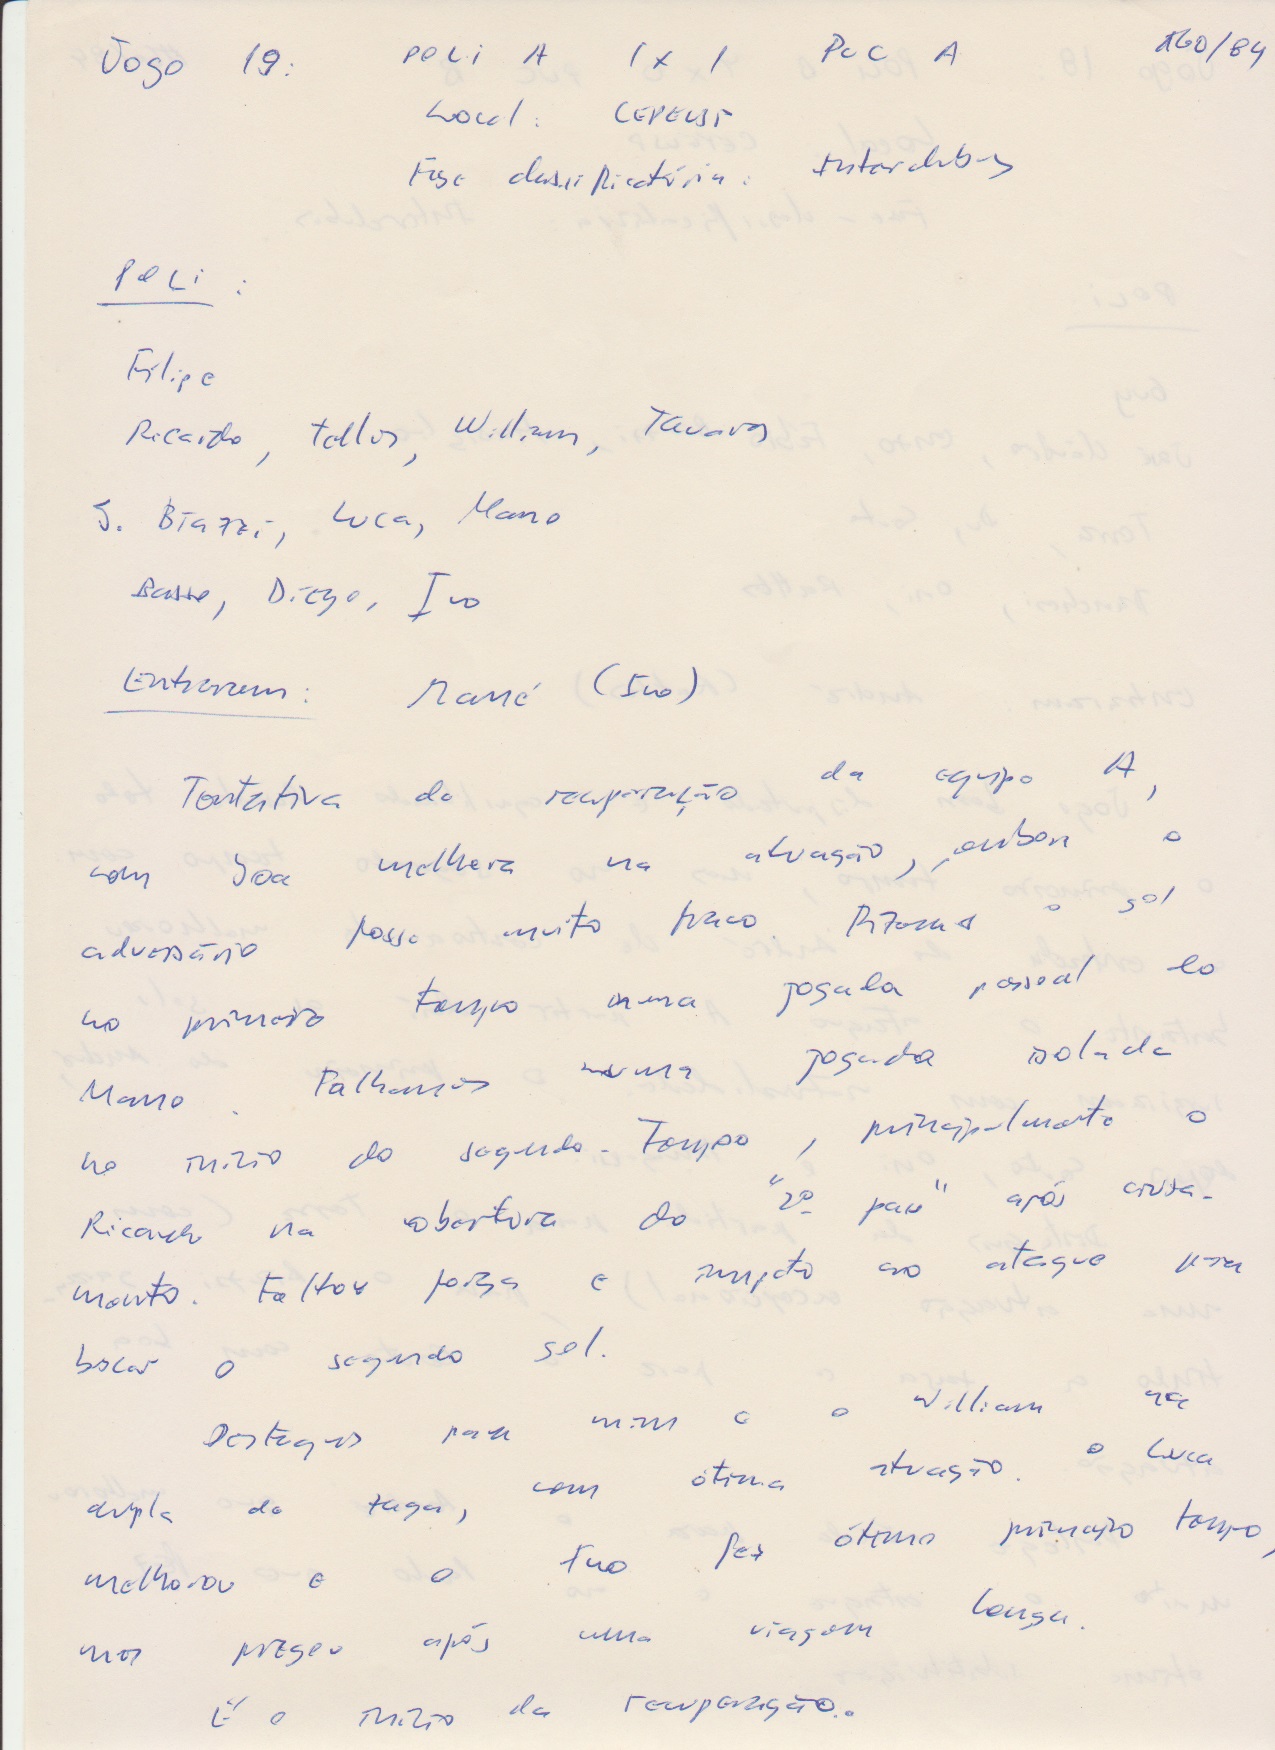 Jogo 19: POLI A 1 x 1 PUC A AGO/84
Local: CEPEUSP
Fase classificatória: Interclubes
POLI:
Filipe
Ricardo, Tellis, William, Tavares
S. Biazzi, Luca, Mano
Basse, Diego, Ivo
Entraram: Mané (Ivo)
Tentativa de recuperação da equipe A,
com boa melhora na atuação, embora o
adversário fosse muito fraco. Fizemos o gol
no primeiro tempo numa jogada pessoal do
Mano. Falhamos numa jogada isolada
no início do segundo tempo, principalmente o
Ricardo na abertura do "2º pau" após cruza-
mento. Faltou força e ímpeto ao ataque para
buscar o segundo gol.
Destaques para mim e o William na
dupla de zaga, com ótima atuação. O Luca
melhorou e o Ivo fez ótimo primeiro tempo,
mas pregou após uma viagem longa.
É o início da recuperação.